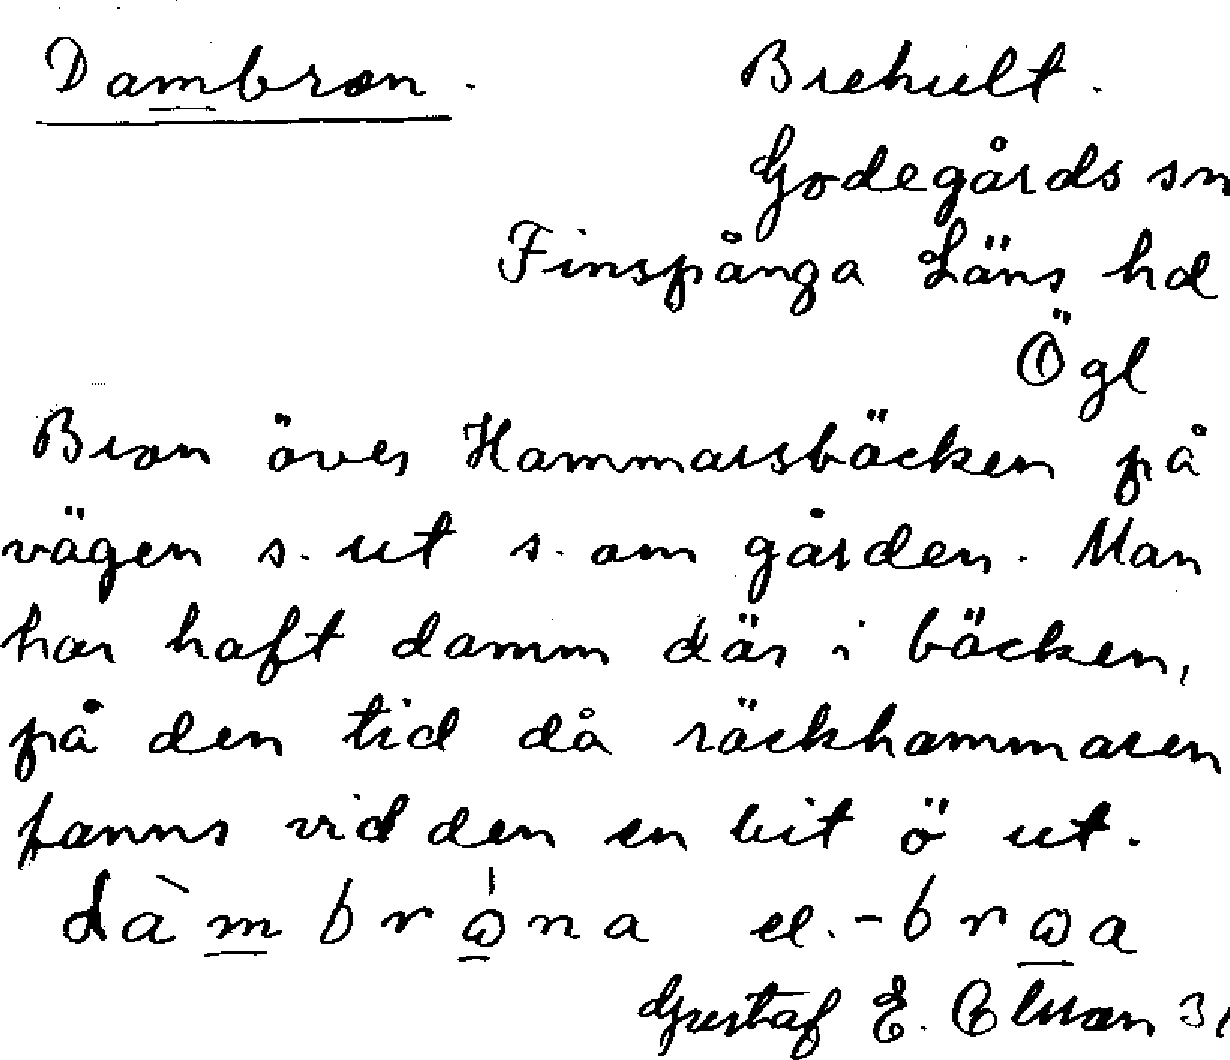 Dambron. Brehult.
Godegårds sn
Finspånga Läns hd
Ögl
Bron över Hammarsbäcken på
vägen s. ut s. om gården. Man
har haft damm där i bäcken,
på den tid då räckhammaren
fanns vid den en bit ö ut.
dàmbrὼna el. -brωa
Gustaf E.